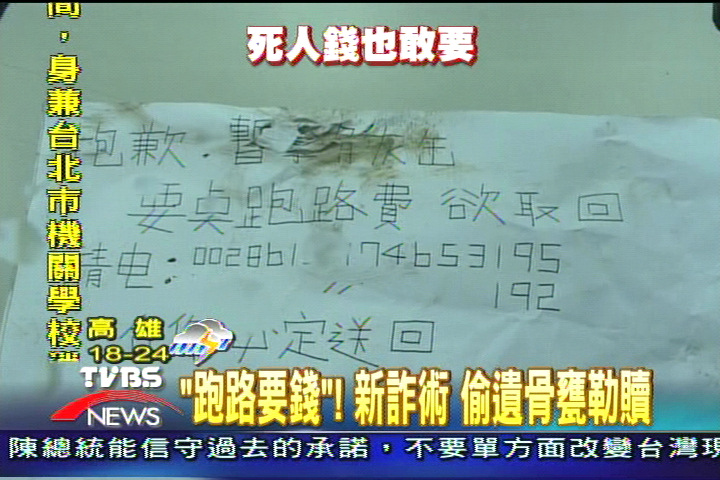 死人錢也敢要
間，身兼台北市機關學校
抱歉．暫拿骨灰缶
要桌跑路費 欲取回
請电：002861 174653195
192
必定送回
高雄
18-24
TVBS
NEWS
"跑路要錢"！新詐術 偷遺骨甕勒贖
陳總統能信守過去的承諾，不要單方面改變台灣現